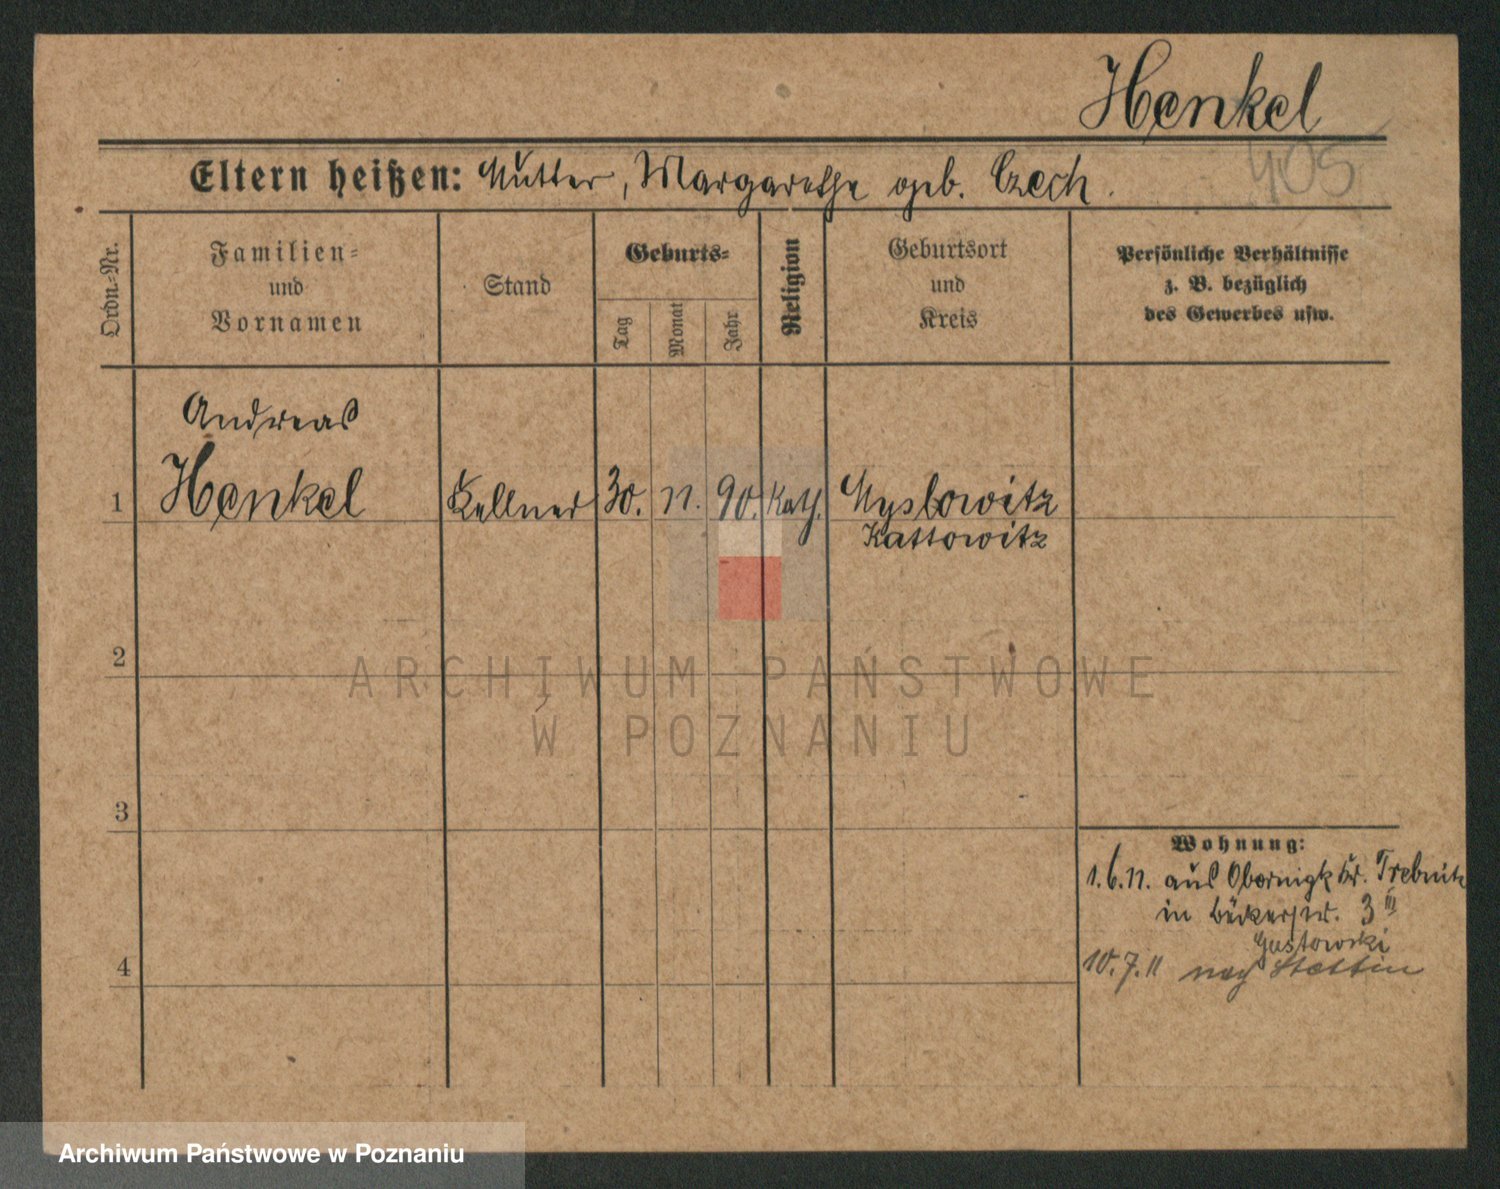 Henkel
405
Eltern heißen: Mutter, Margarethe geb. Czech.
Ordn.-Nr.
Familien-
und
Vornamen
Stand
Geburts-
Tag
Monat
Jahr
Religion
Geburtsort
und
Kreis
Persönliche Verhältnisse
z. B. bezüglich
des Gewerbes usw.
Andreas
1 Henkel Kellner 30. 11. 90. Kath. Myslowitz
Kattowitz
2
3
4
Wohnung:
1.6.11. aus Obernigk Kr. Trebnitz
in Bäckerstr. 3 III
Gustowski
10.7.11 nach Stettin
ARCHIWUM PAŃSTWOWE
W POZNANIU
Archiwum Państwowe w Poznaniu